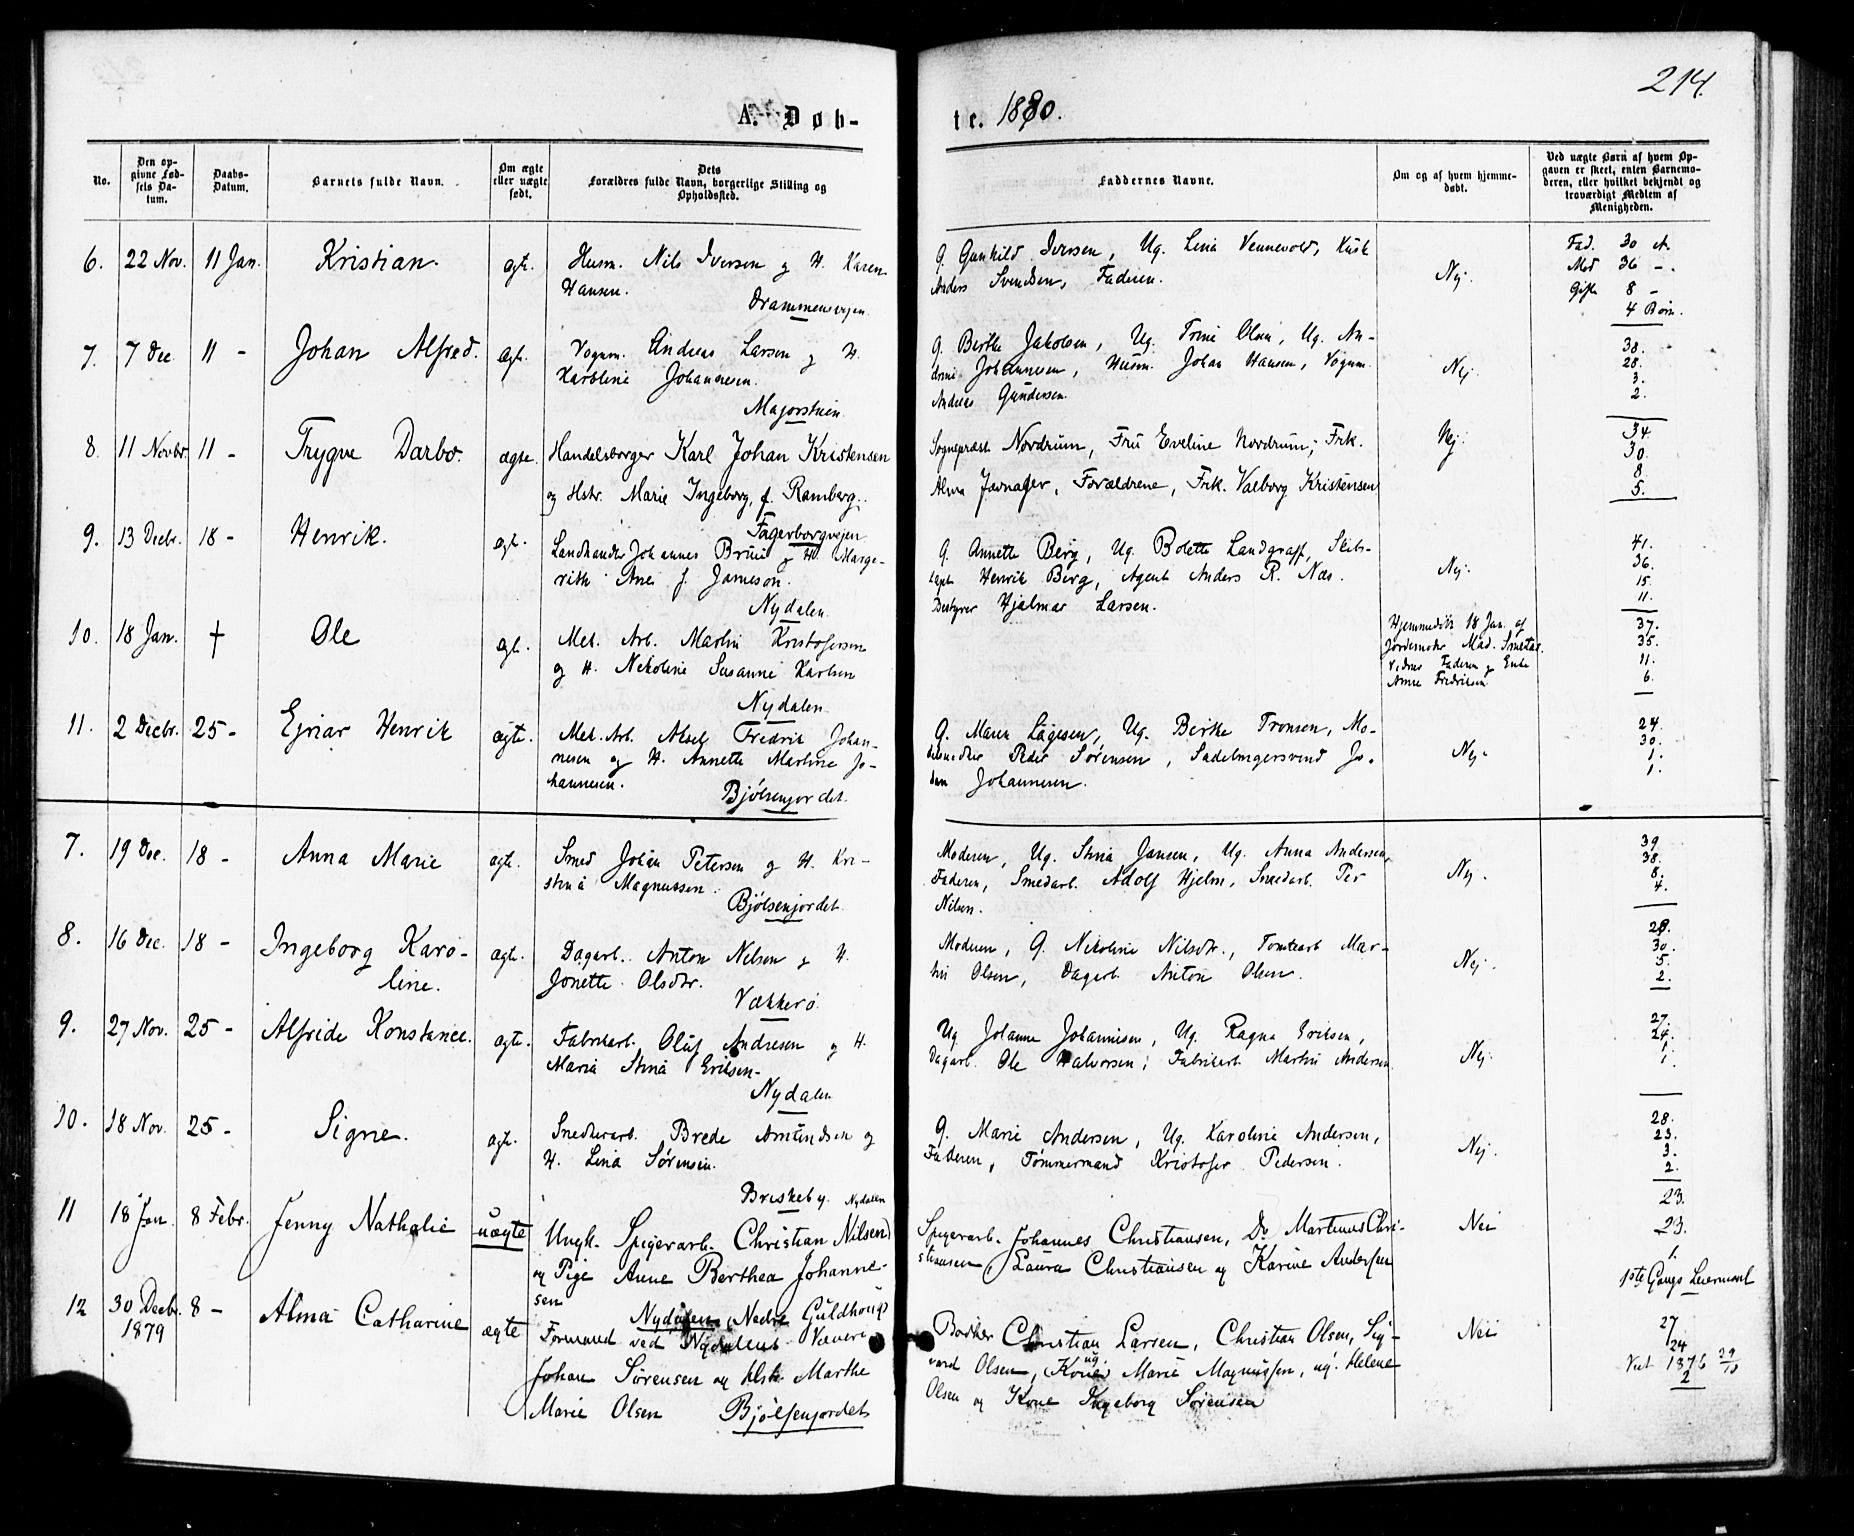 214.
A. Døb-
te. 1880.
No.
Den op-
givne Fød-
sels Da-
tum.
Daabs-
Datum.
Barnets fulde Navn.
Om ægte
eller uægte
født.
Dets
Forældres fulde Navn, borgerlige Stilling og
Opholdssted.
Faddernes Navne.
Om og af hvem hjemme-
døbt.
Ved uægte Børn af hvem Op-
gaven er skeet, enten Barnemo-
deren, eller hvilket bekjendt og
troværdigt Medlem af
Menigheden.
6. 22 Nov. 11 Jan. Kristian. ægt. Husm. Nils Iversen og H. Karen
Hansen.
Drammensvejen.
G. Gunhild Iversen, Ug. Lina Vennevold, Kusk
Anders Svendsen, Faderen.
Nej.
Fad. 30 A.
Mod 36 -.
Gifte 8 -
4 Børn.
7. 7 Dec 11 - Johan Alfred. ægt. Vognm. Andreas Larsen og H.
Karoline Johannesen.
Majorstuen.
G. Berthe Jakobsen, Ug. Trine Olsen, Ug. An-
drine Johannesen, Husm. Johan Hansen, Vognm.
Andreas Gundersen.
Nej.
38.
28.
3.
2.
8. 11 Novbr. 11 - Trygve Darbo. ægte. Handelsborger Karl Johan Kristensen
og Hstr. Marie Ingeborg, f. Ramberg.
Fagerborgvejen
Sognepræst Nordrum, Fru Eveline Nordrum, Frk.
Alma Javnager, Forældrene, Frk. Valborg Kristensen
Nej.
34.
30.
8.
5.
9. 13 Decbr. 18 - Henrik. ægt. Landhandler Johannes Bruu og H. Marge-
rith Ane f. Jameson.
Nydalen.
G. Annette Berg, Ug. Bolette Landgraff, Skibs-
capt. Henrik Berg, Agent Anders R. Næs.
Bestyrer Hjalmar Larsen.
Nej.
41.
36.
15.
11.
10. 18 Jan. † Ole ægt. Mek. Arb. Martin Kristofersen
og H. Nikoline Susanne Karlsen
Nydalen.
Hjemmedøbt 18 Jan. af
Jordemoder Mad. Smetas.
Vidner Faderen og Enke
Anne Fredriksen.
37.
35.
11.
6.
11. 2 Decbr. 25 - Ejnar Henrik ægte. Mek. Arb. Aksel Fredrik Johan-
nesen og H. Annette Martine Jo-
hannesen.
Bjølsenjordet.
G. Maren Lagesen, Ug. Berthe Tronsen, Mo-
delsnedker Peder Sørensen, Sadelmagersvend Jo-
han Johannesen.
Nej.
24.
30.
1.
1.
7. 19 Dec. 18 - Anna Marie ægt. Smed Johan Petersen og H. Kri-
stina Magnussen.
Bjølsenjordet.
Moderen, Ug. Stina Jansen, Ug. Anna Andersen,
Faderen, Smedarb. Adolf Hjelm, Smedarb. Per
Nilsen.
Nej.
39
38.
8.
4.
8. 16 Dec. 18 - Ingeborg Karo-
line. ægt. Dagarb. Anton Nilsen og H.
Jonette Olsdtr.
Vækkerø
Moderen, G. Nikoline Nilsdtr., Tomtearb Mar-
tin Olsen, Dagarb. Anton Olsen.
Nej.
28.
30.
5.
2.
9. 27 Nov. 25 - Alfride Konstance. ægte. Fabrikarb. Oluf Andresen og H.
Maria Stina Eriksen.
Nydalen
Ug. Johanne Johannesen, Ug. Ragna Eriksen,
Dagarb. Ole Halvorsen, Fabrikarb. Martin Andersen
Nej.
27.
24.
1.
10. 18 Nov. 25 - Signe. ægt. Snedkerarb. Brede Amundsen og
H. Lina Sørensen.
Briskeby. Nydalen
G. Marie Andersen, Ug. Karoline Andersen,
Faderen, Tømmermand Kristofer Pedersen.
Nej.
28.
23.
3.
2.
11 18 Jan. 8 Febr. Jenny Nathalie uægte Ungk. Spigerarb. Christian Nilsen
og Pige Anne Berthea Johanne-
sen Nydalen, Nedre Guldhoug
Spigerarb. Johannes Christiansen, Do Martinus Chri-
stiansen, Laura Christiansen og Karine Andersen
Nei
23.
23.
1.
1ste Gangs Leiermaal
12 30 Decbr. 8 - Alma Catharine ægte Formand ved Nydalens Væveri
1879
Johan Sørensen og Hstr. Marthe
Marie Olsen Bjølsenjordet
Christian Larsen, Christian Olsen, Sig-
vard Olsen, ug. Marie Magnussen, ug. Helene
Olsen og Kone Ingeborg Sørensen
Nei
27
24
Viet 1876 29/10
2